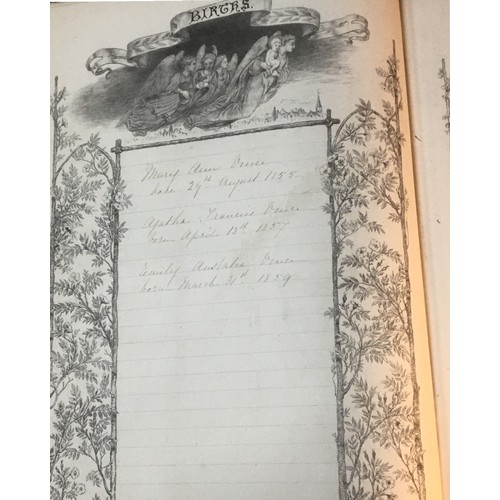 BIRTHS.
Mary Ann
born 29th August 1855
Agatha Frances
born April 13th 1857
Emily Australia
born March 31st 1859